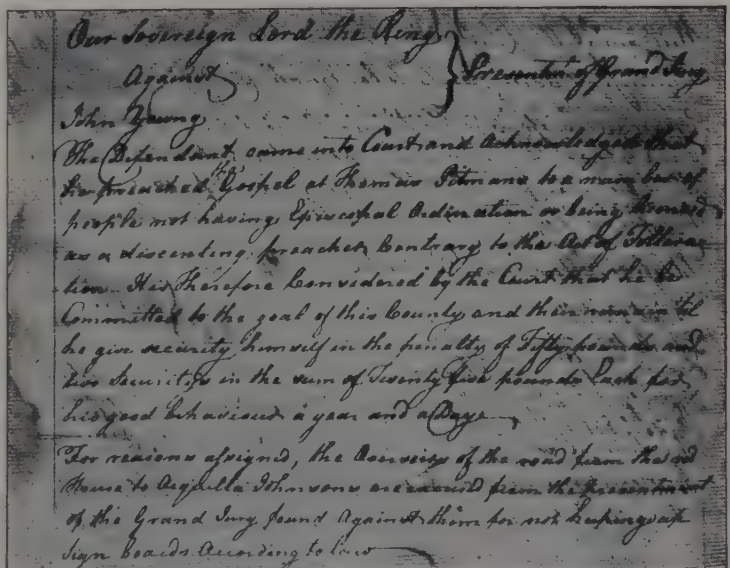 Our Sovereign Lord the King
Against
Presentmt of Grand Jury
John Young
The Defendant came into Court and Acknowledged that
he preached the Gospel at Thomas Pitmans to a number of
people not having Episcopal Ordination or being
as a discenting preacher Contrary to the Act of Tollera
tion It is Therefore Considered by the Court that he be
Committed to the goal of this County and their remain til
he give security himself in the penalty of Fifty pounds and
two Securitys in the sum of Twenty five pounds Each for
his good behaviour a year and a Daye
For reasons assigned, the Overseers of the road from the
House to Acquilla Johnsons are from the presentment
of the Grand Jury found Against them for not keeping up
sign boards According to law